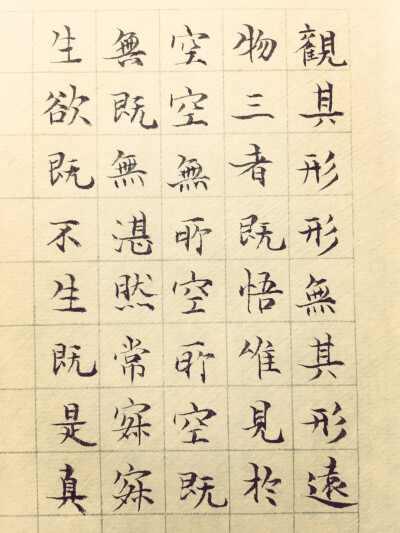 觀其形形無其形遠
物三者既悟唯見於
空空無所空所空既
無既無湛然常寂寂
生欲既不生既是真